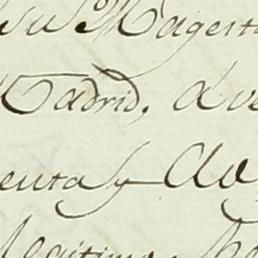 su Magest
Madrid, a ve
enta y do
legitimo